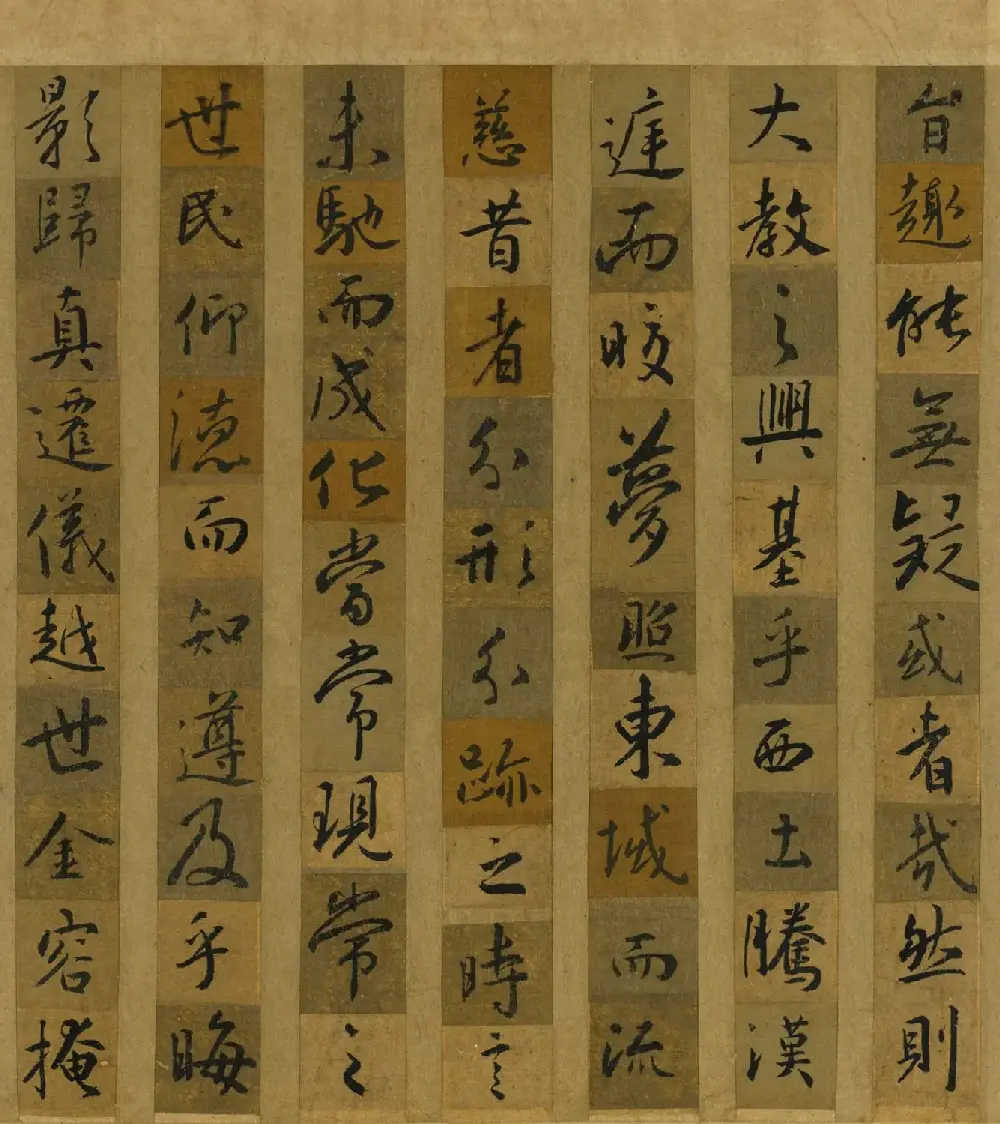 旨趣能無疑惑者哉然則
大教之興基乎西土騰漢
庭而皎夢照東域而流
慈昔者分形分跡之時言
未馳而成化當常現常之
世民仰德而知遵及乎晦
影歸真遷儀越世金容掩